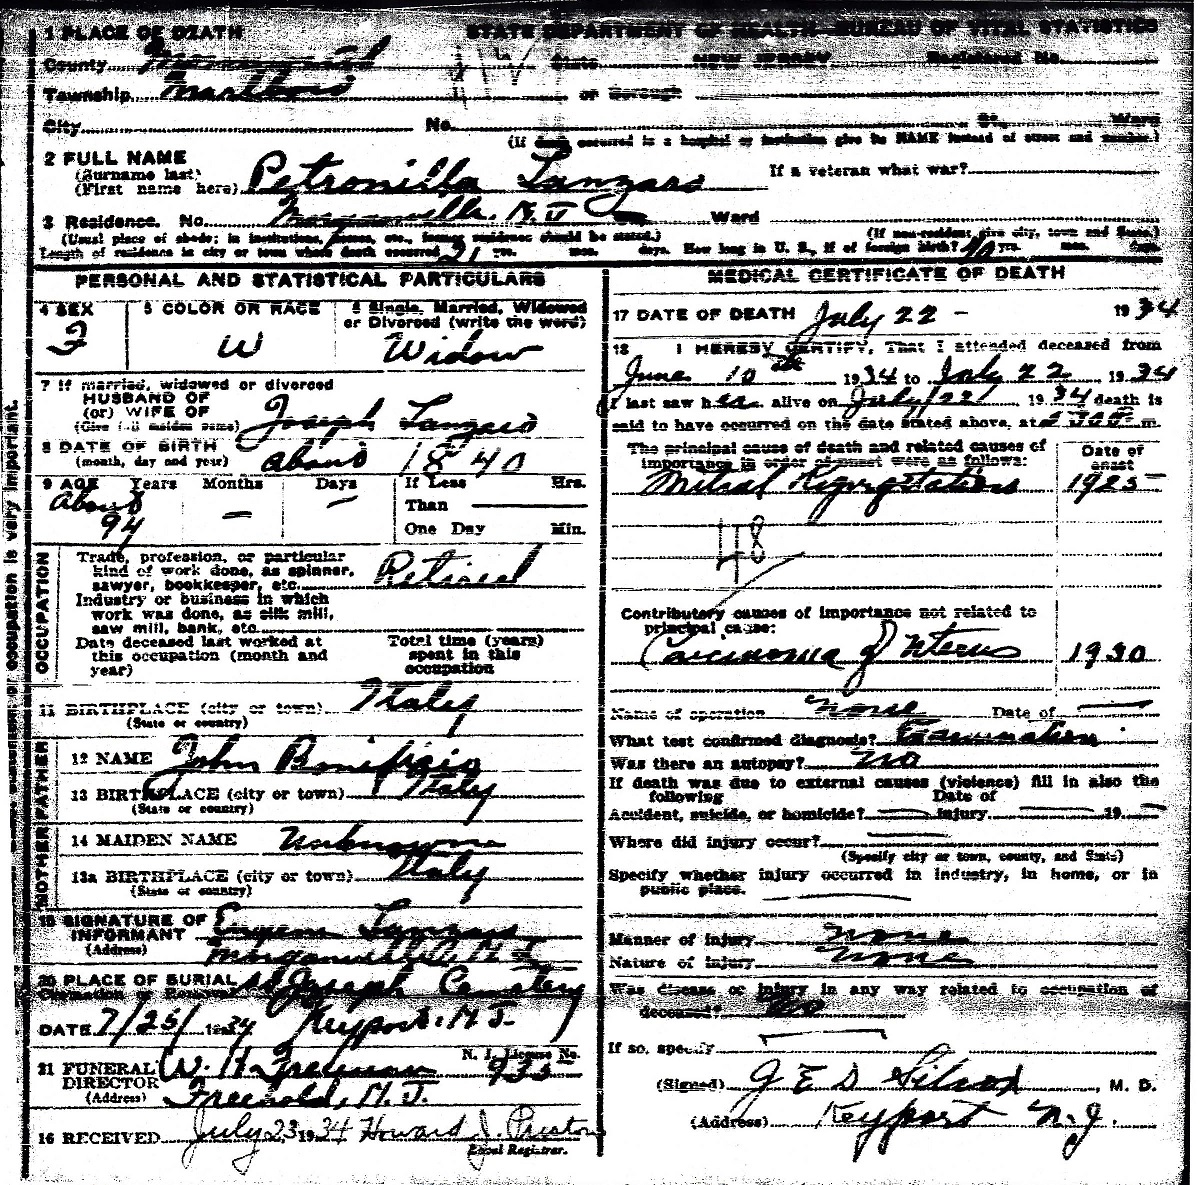 1 PLACE OF DEATH
STATE DEPARTMENT OF HEALTH—BUREAU OF VITAL STATISTICS
County Monmouth State NEW JERSEY Registered No.
Township Marlboro or Borough
City No. St. Ward
(If death occurred in a hospital or institution give its NAME instead of street and number.)
2 FULL NAME
(Surname last)
(First name here) Petronilla Lanzaro If a veteran what war?
3 Residence. No. Morganville, N.J. Ward
(Usual place of abode; in institutions, homes, etc., former residence should be stated.) (If non-resident give city, town and State.)
Length of residence in city or town where death occurred 21 yrs. mos. days. How long in U. S., if of foreign birth? yrs. mos. days.
PERSONAL AND STATISTICAL PARTICULARS
4 SEX
F
5 COLOR OR RACE
W
6 Single, Married, Widowed
or Divorced (write the word)
Widow
7 If married, widowed or divorced
HUSBAND OF
(or) WIFE OF Joseph Lanzaro
(Give full maiden name)
8 DATE OF BIRTH
(month, day and year) about 1840
9 AGE Years Months Days
About
94 — —
If Less Hrs.
Than
One Day Min.
OCCUPATION
Trade, profession, or particular
kind of work done, as spinner,
sawyer, bookkeeper, etc. Retired
Industry or business in which
work was done, as silk mill,
saw mill, bank, etc.
Date deceased last worked at
this occupation (month and
year)
Total time (years)
spent in this
occupation
11 BIRTHPLACE (city or town) Italy
(State or country)
FATHER
12 NAME John Bonifacio
13 BIRTHPLACE (city or town) Italy
(State or country)
MOTHER
14 MAIDEN NAME Unknown
13a BIRTHPLACE (city or town) Italy
(State or country)
SIGNATURE OF
INFORMANT Lanzaro
(Address) Morganville N.J.
20 PLACE OF BURIAL St Joseph Cemetery
DATE 7/25/1934 Keyport, N.J.
N. J. License No.
21 FUNERAL W. H. Freeman 935
DIRECTOR
(Address) Freehold, N.J.
16 RECEIVED July 23 1934 Howard J. Preston
Local Registrar.
MEDICAL CERTIFICATE OF DEATH
17 DATE OF DEATH July 22 - 1934
18 I HEREBY CERTIFY, That I attended deceased from
June 10th 1934 to July 22 1934
I last saw her alive on July 22 1934 death is
said to have occurred on the date stated above, at m.
The principal cause of death and related causes of
importance in order of onset were as follows:
Date of
onset
Mitral Regurgitation 1925
48
Contributory causes of importance not related to
principal cause:
Carcinoma of Uterus 1930
Name of operation None Date of —
What test confirmed diagnosis? Examination
Was there an autopsy? No
If death was due to external causes (violence) fill in also the
following Date of
Accident, suicide, or homicide? — injury — 19 —
Where did injury occur? —
(Specify city or town, county, and State)
Specify whether injury occurred in industry, in home, or in
public place. —
Manner of injury None
Nature of injury None
Was disease or injury in any way related to occupation of
deceased? No
If so, specify
(Signed) J E D Silcox, M. D.
(Address) Keyport N.J.
of occupation is very important.